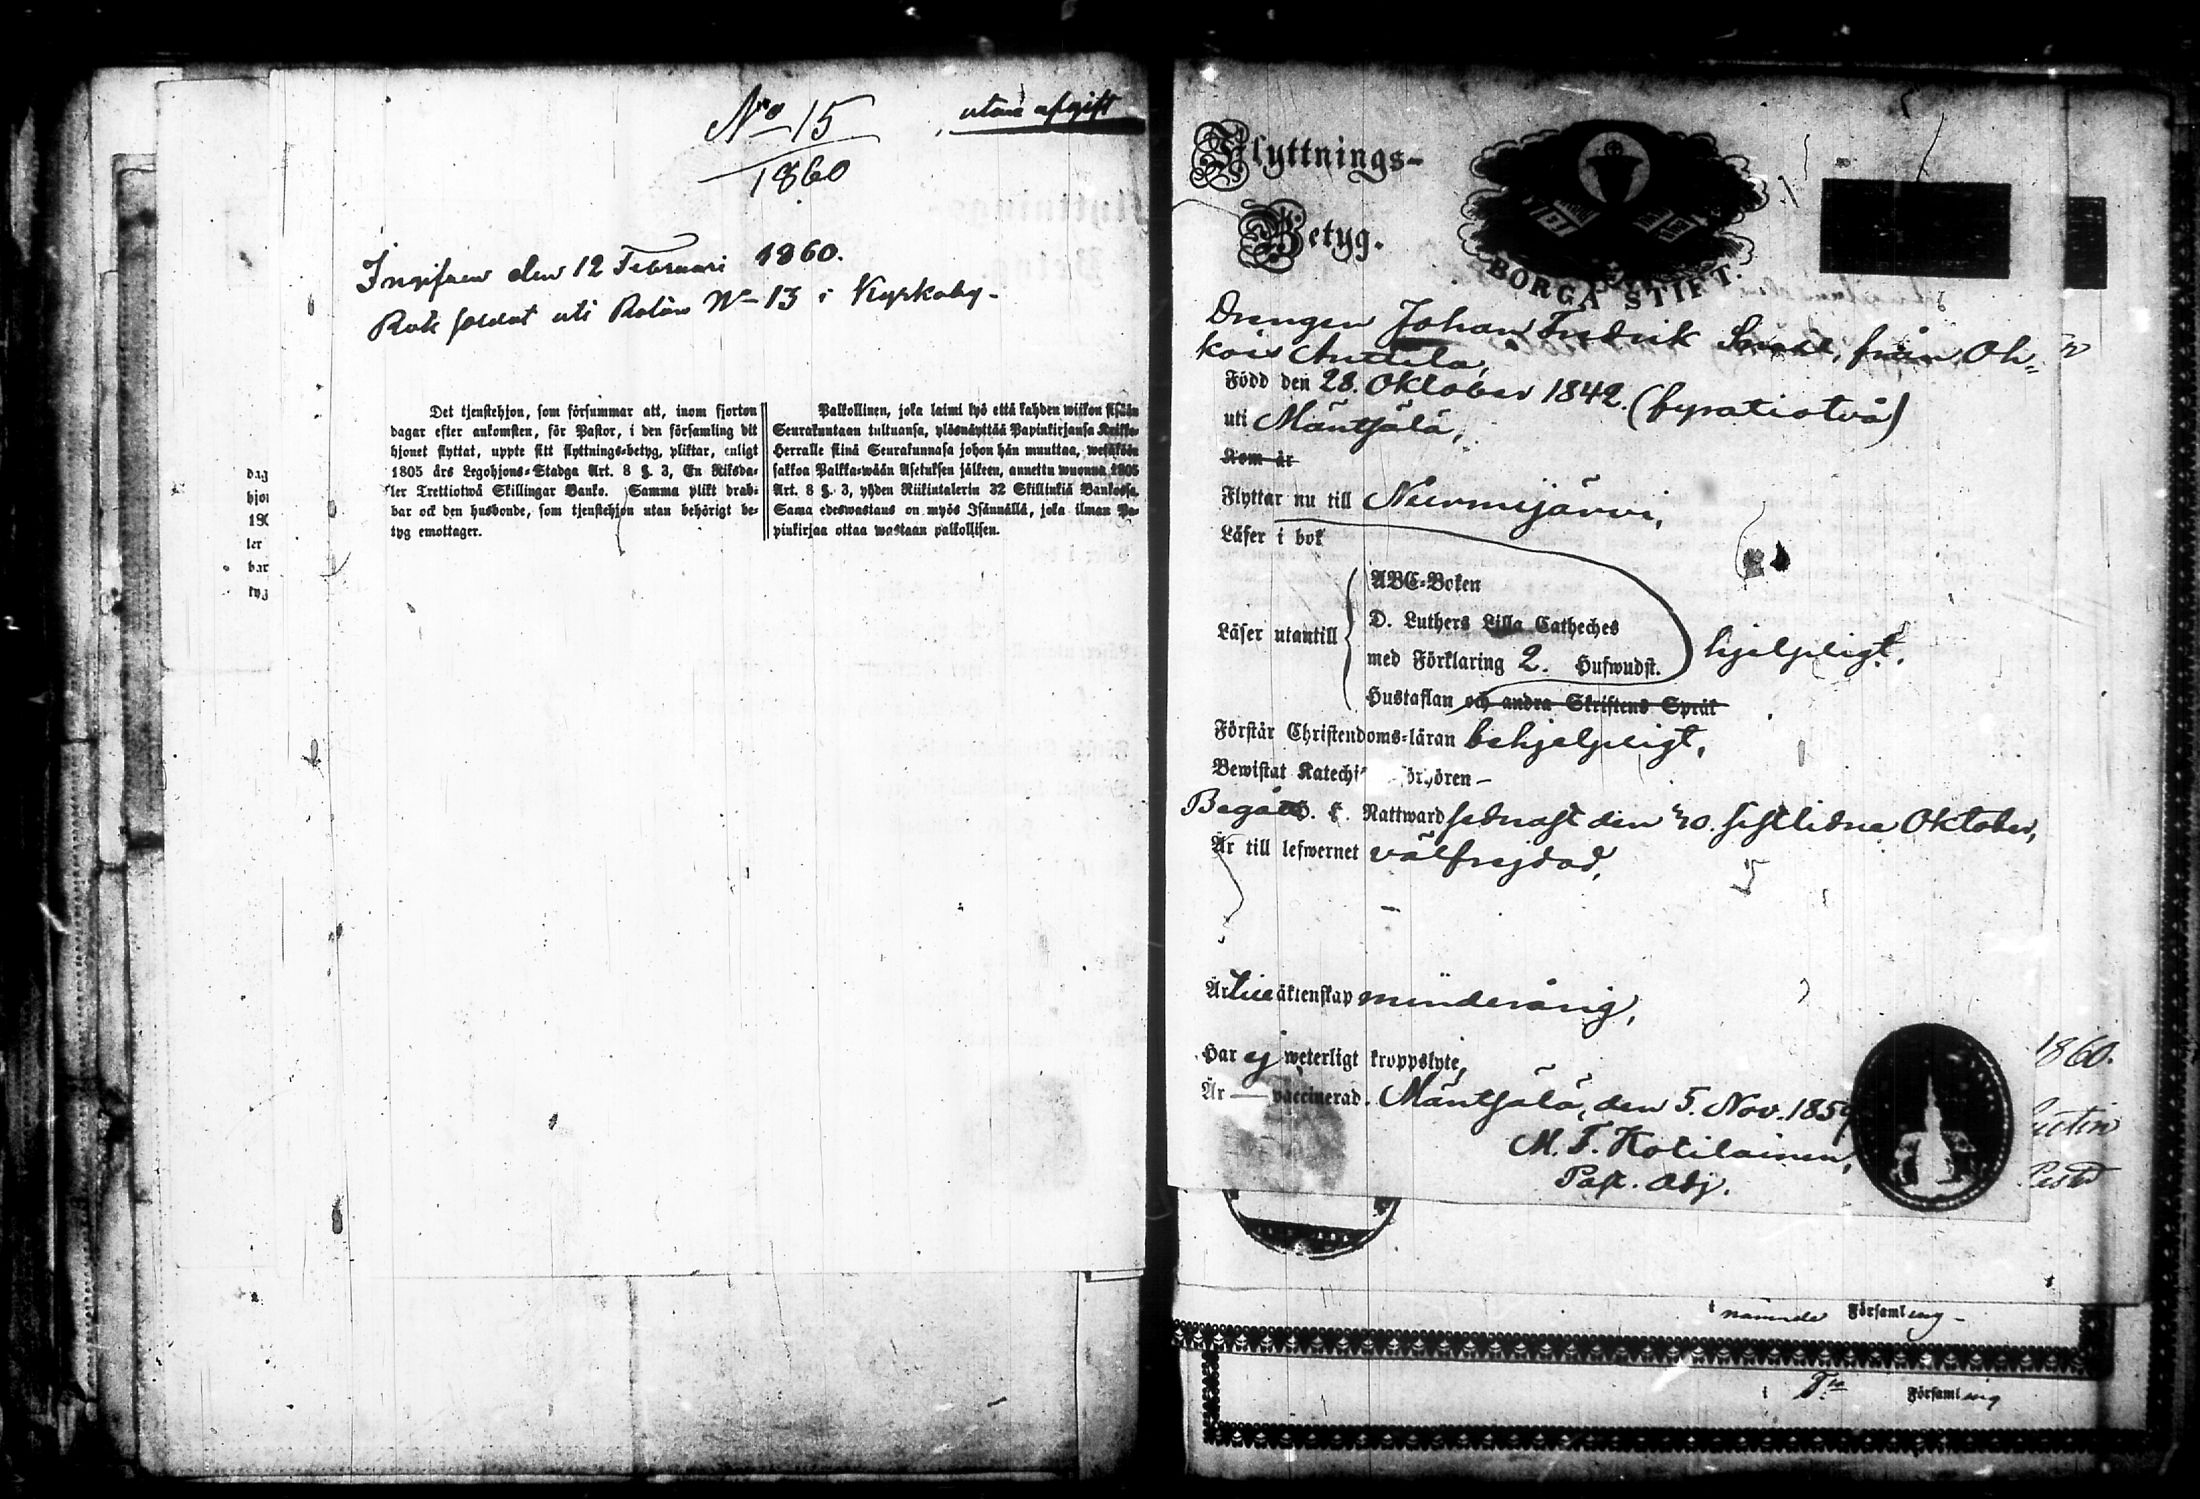 No 15
utan afgift
1860
Ingifven den 12 Februari 1860.
Rote soldat uti Rotan No 13 i Kyrkoby-
Det tjenstehjon, som försummar att, inom fjorton
dagar efter ankomsten, för Pastor, i den församling dit
hjonet flyttat, uppte sitt flyttnings-betyg, pliktar, enligt
1805 års Legohjons-Stadga Art. 8 §. 3, En Riksda-
ler Trettiotwå Skillingar Banko. Samma plikt drab-
bar ock den husbonde, som tjenstehjon utan behörigt be-
tyg emottager.
Palkollinen, joka laimi lyö että kahden wiikon sisään
Seurakuntaan tultuansa, ylösnäyttää Papinkirjansa Kirkko-
Herralle siinä Seurakunnasa johon hän muuttaa, wetäköön
sakkoa Palkka-wään Asetuksen jälkeen, annettu wuonna 1805
Art. 8 §. 3, yhden Riikintalerin 32 Skillinkiä Bankossa.
Sama edeswastaus on myös Isännällä, joka ilman Pa-
pinkirjaa ottaa wastaan palkollisen.
dag
hjon
180
ler
bar
tyg
Flyttnings-
Betyg.
BORGÅ STIFT.
Drengen Johan Fredrik från Oh-
kois Anttila,
Född den 28. Oktober 1842. (fyratiotvå)
uti Mäntsälä,
Kom år
Flyttar nu till Nurmijärvi,
Läser i bok
ABC-Boken
D. Luthers Lilla Catheches
Läser utantill
med Förklaring 2. Hufwudst.
hjelpligt.
Hustaflan och andra Skriftens Språk
Förstår Christendoms-läran behjelpligt,
Bewistat Katechi- förhören -
Begått H. H. Nattward sednast den 30. sistlidne Oktober,
Är till lefwernet välfrejdad,
Är till äktenskap minderårig,
Har ej weterligt kroppslyte,
Är — vaccinerad. Mäntsälä, den 5. Nov. 1859
M. F. Kotilainen,
Past. Adj.
1860.
i nämnde Församling -
Församling